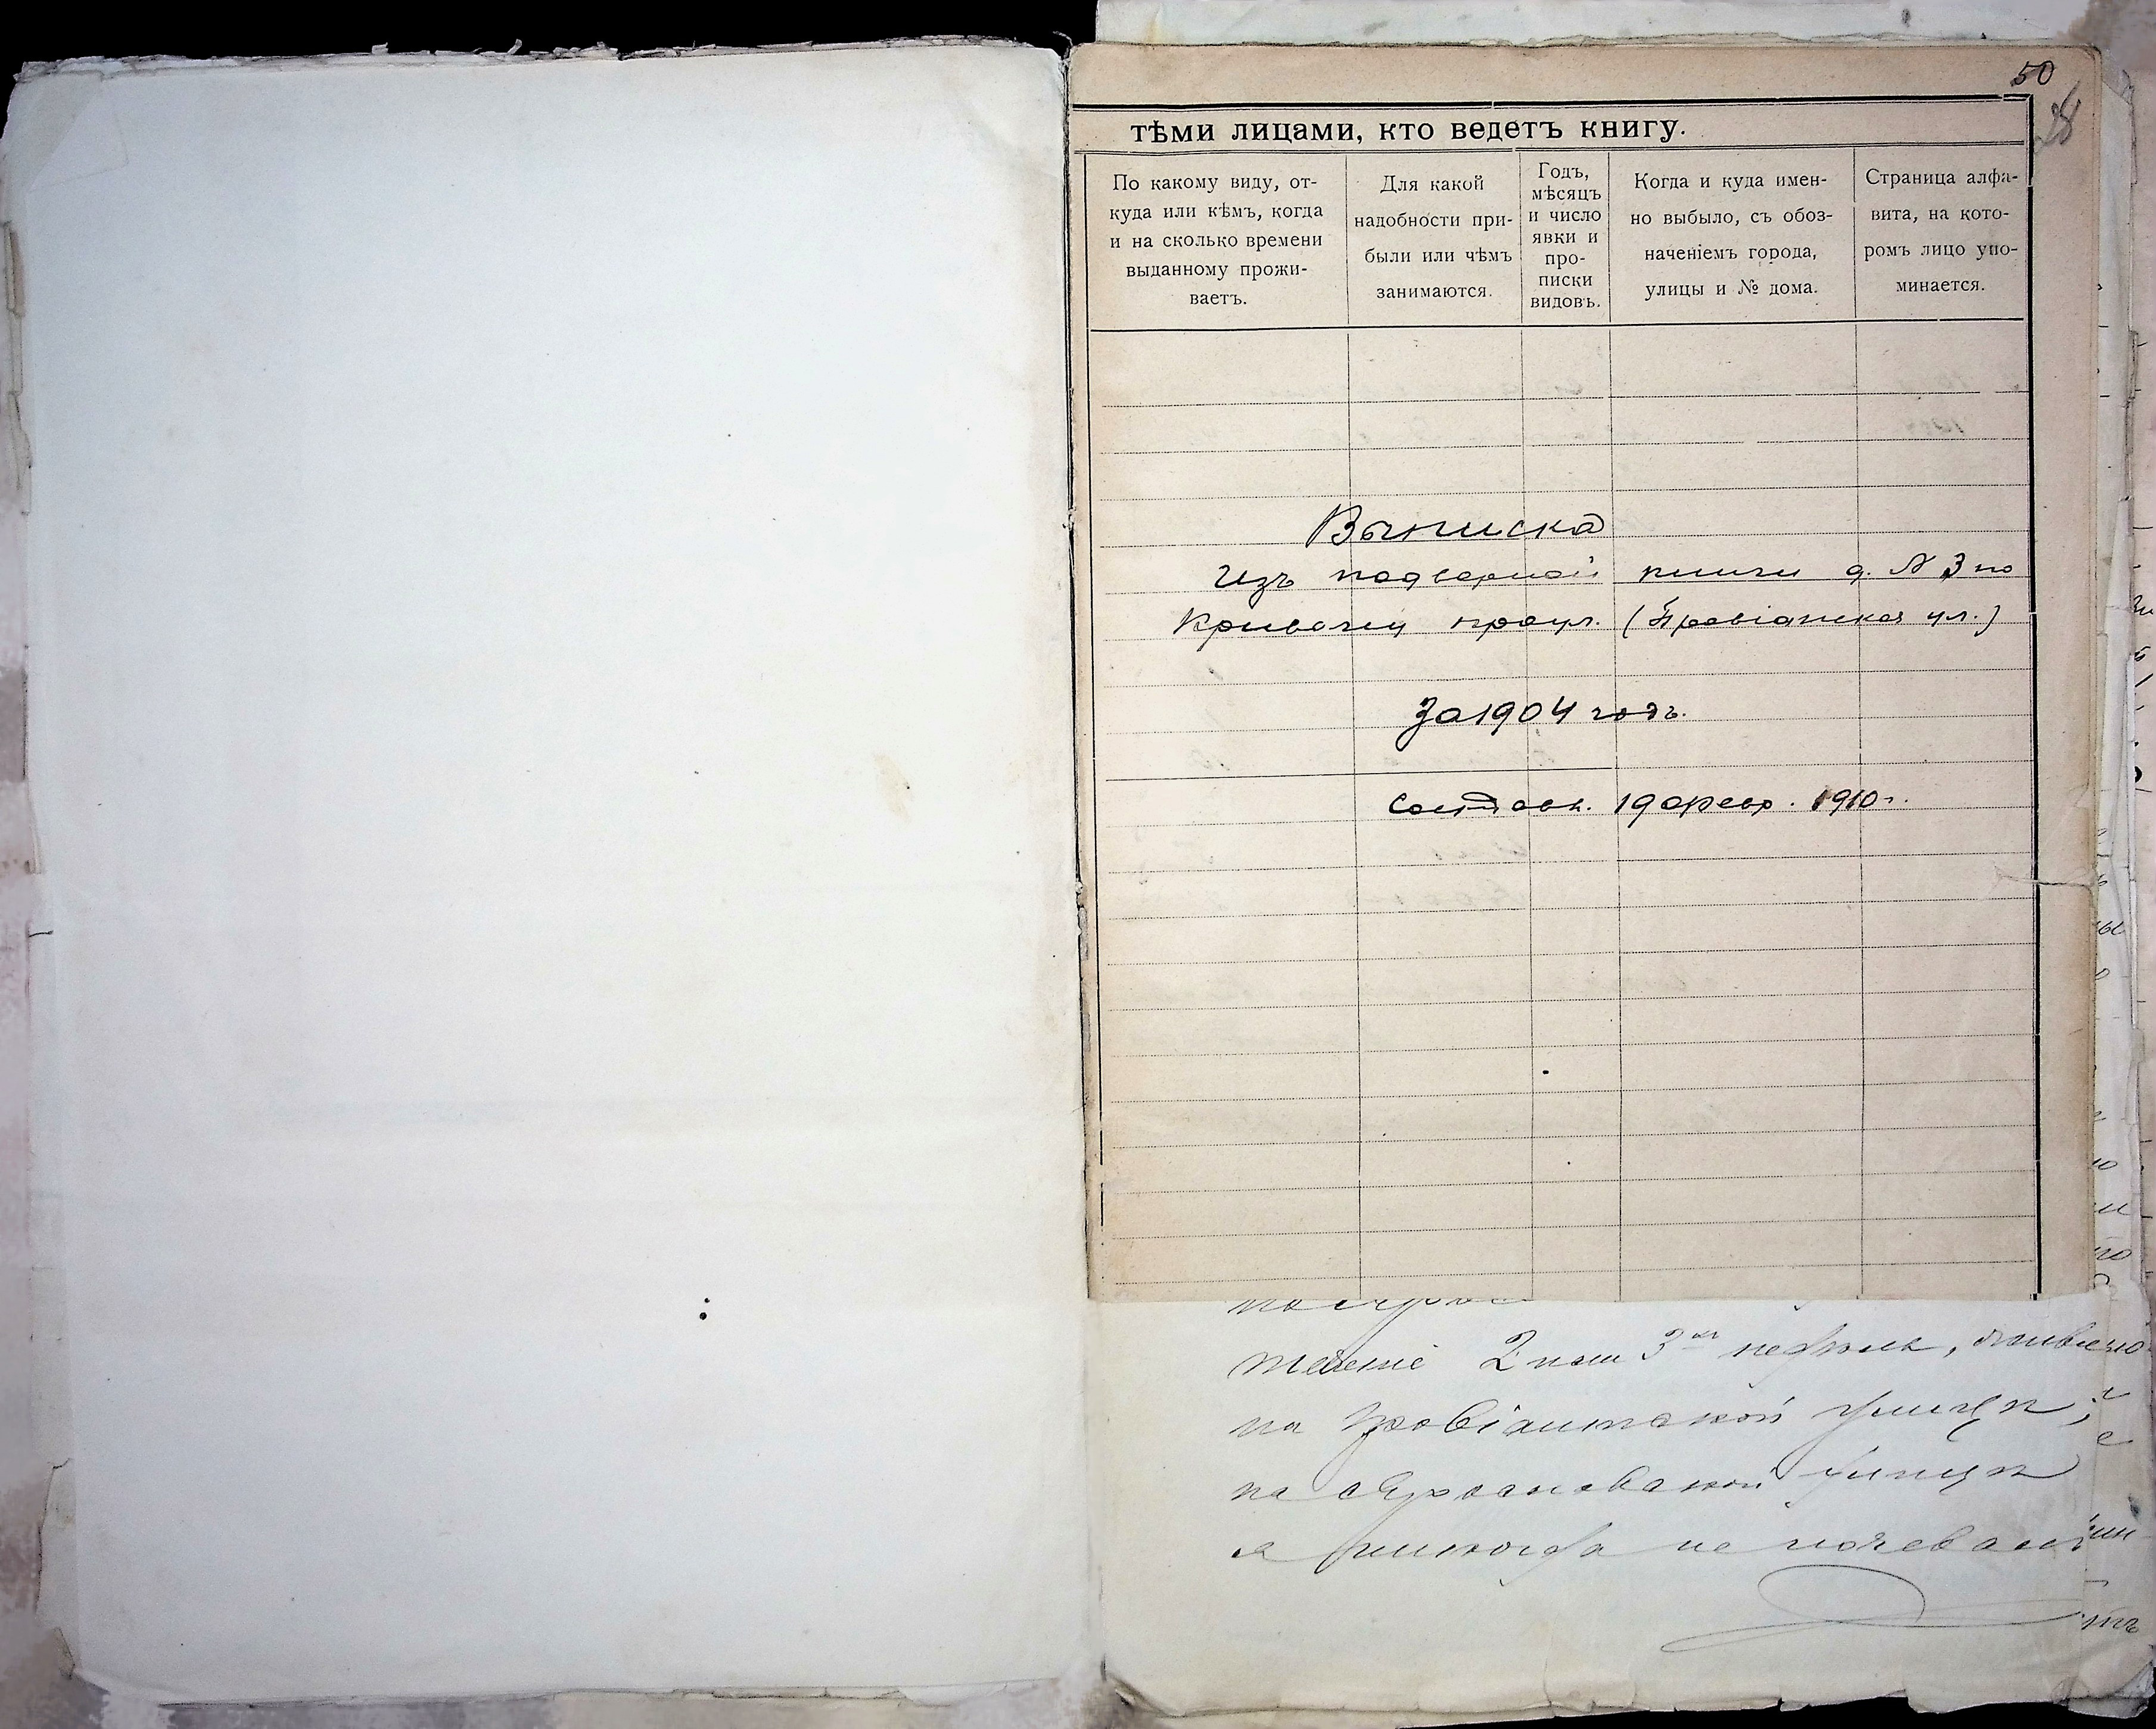 50
28
тѣми лицами, кто ведетъ книгу.
По какому виду, от-
куда или кѣмъ, когда
и на сколько времени
выданному прожи-
ваетъ.
Для какой
надобности при-
были или чѣмъ
занимаются.
Годъ,
мѣсяцъ
и число
явки и
про-
писки
видовъ.
Когда и куда имен-
но выбыло, съ обоз-
наченіемъ города,
улицы и № дома.
Страница алфа-
вита, на кото-
ромъ лицо упо-
минается.
Выписка
Изъ подворной книги д. № 3 по
Кривому проул. (Провіанская ул.)
За 1904 годъ.
Составл. 19 февр. 1910 г.
теченіе 2 или 3хъ недѣль,
на Провіантской улицѣ;
на улицѣ
я никогда не ночевалъ